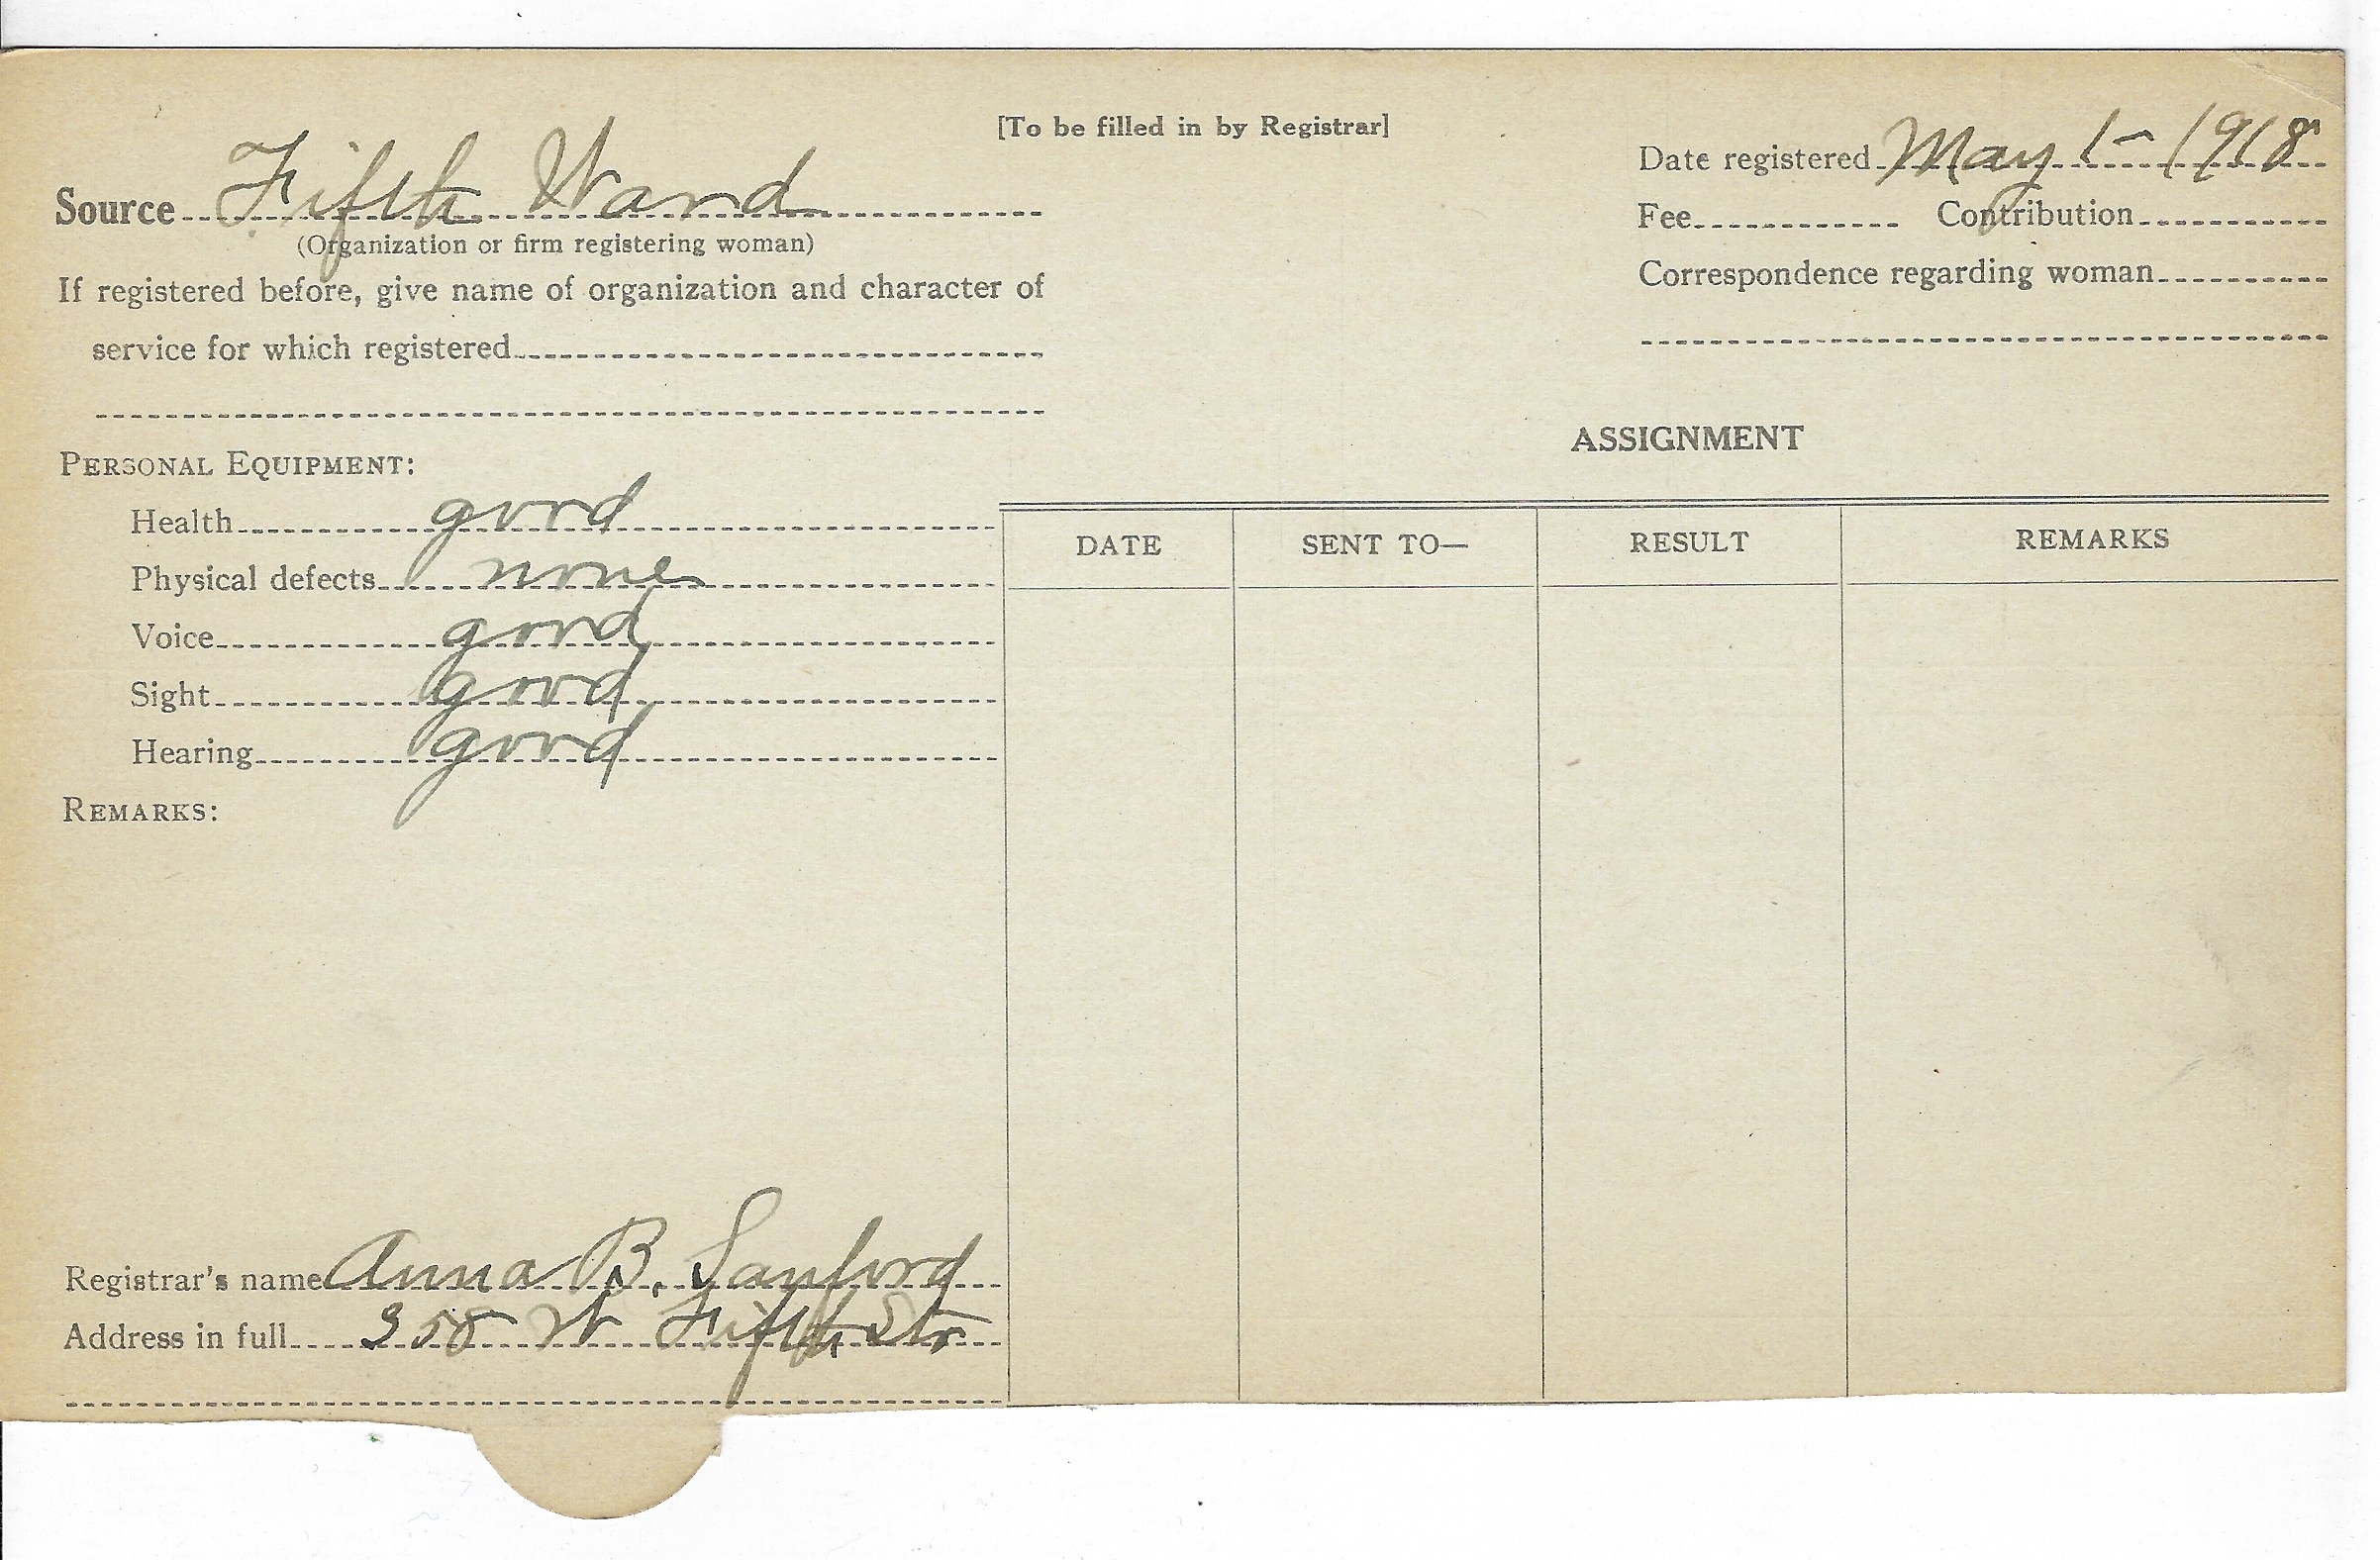 [To be filled in by Registrar]
Source Fifth Ward
(Organization or firm registering woman)
If registered before, give name of organization and character of
service for which registered
Date registered May 1- 1918
Fee Contribution
Correspondence regarding woman
PERSONAL EQUIPMENT:
Health good
Physical defects none
Voice good
Sight good
Hearing good
REMARKS:
ASSIGNMENT
DATE SENT TO— RESULT REMARKS
Registrar's name Anna B. Sanford
Address in full 358 W Fifth Str